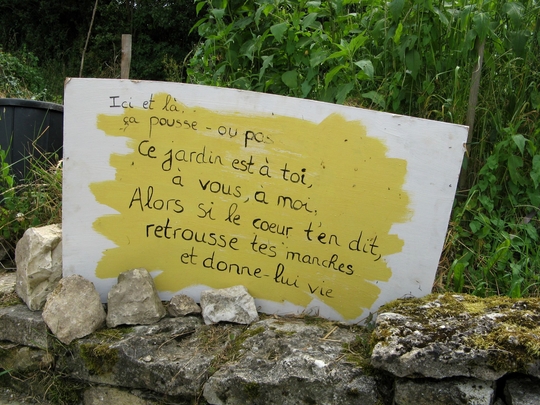 Ici et là...
ça pousse - ou pas
Ce jardin est à toi,
à vous, à moi.
Alors si le coeur t'en dit,
retrousse tes manches
et donne-lui vie